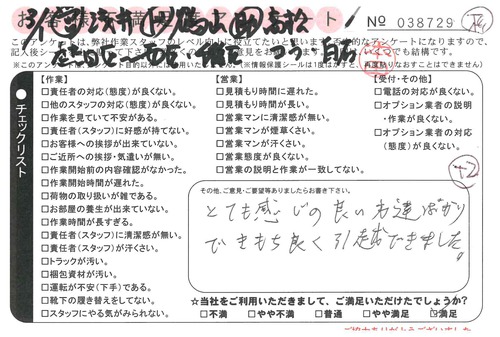 No 038729
このアンケートは、弊社作業スタッフのレベル向上に役立てたいと思います。
※このアンケート
再度貼りなおすことはできません)
チェックリスト
【作業】
□責任者の対応(態度)が良くない。
□他のスタッフの対応(態度)が良くない。
□作業を見ていて不安がある。
□責任者(スタッフ)に好感が持てない。
□お客様への挨拶が出来ていない。
□ご近所への挨拶・気遣いが無い。
□作業開始前の内容確認がなかった。
□作業開始時間が遅れた。
□荷物の取り扱いが雑である。
□お部屋の養生が出来ていない。
□作業時間が長すぎる。
□責任者(スタッフ)に清潔感が無い。
□責任者(スタッフ)が汗くさい。
□トラックが汚い。
□梱包資材が汚い。
□運転が不安(下手)である。
□靴下の履き替えをしてない。
□スタッフにやる気がみられない。
【営業】
□見積もり時間に遅れた。
□見積もり時間が長い。
□営業マンに清潔感が無い。
□営業マンが煙草くさい。
□営業マンが汗くさい。
□営業態度が良くない。
□営業の説明と作業が一致してない。
【受付・その他】
□電話の対応が良くない。
□オプション業者の説明
・作業が良くない。
□オプション業者の対応
(態度)が良くない。
+2
その他、ご意見・ご要望等ありましたらお書き下さい。
とても感じの良い方達ばかり
できもち良く引越できました。
☆当社をご利用いただきまして、ご満足いただけたでしょうか?
□不満 □やや不満 □普通 □やや満足 □満足
ご協力ありがとうございました